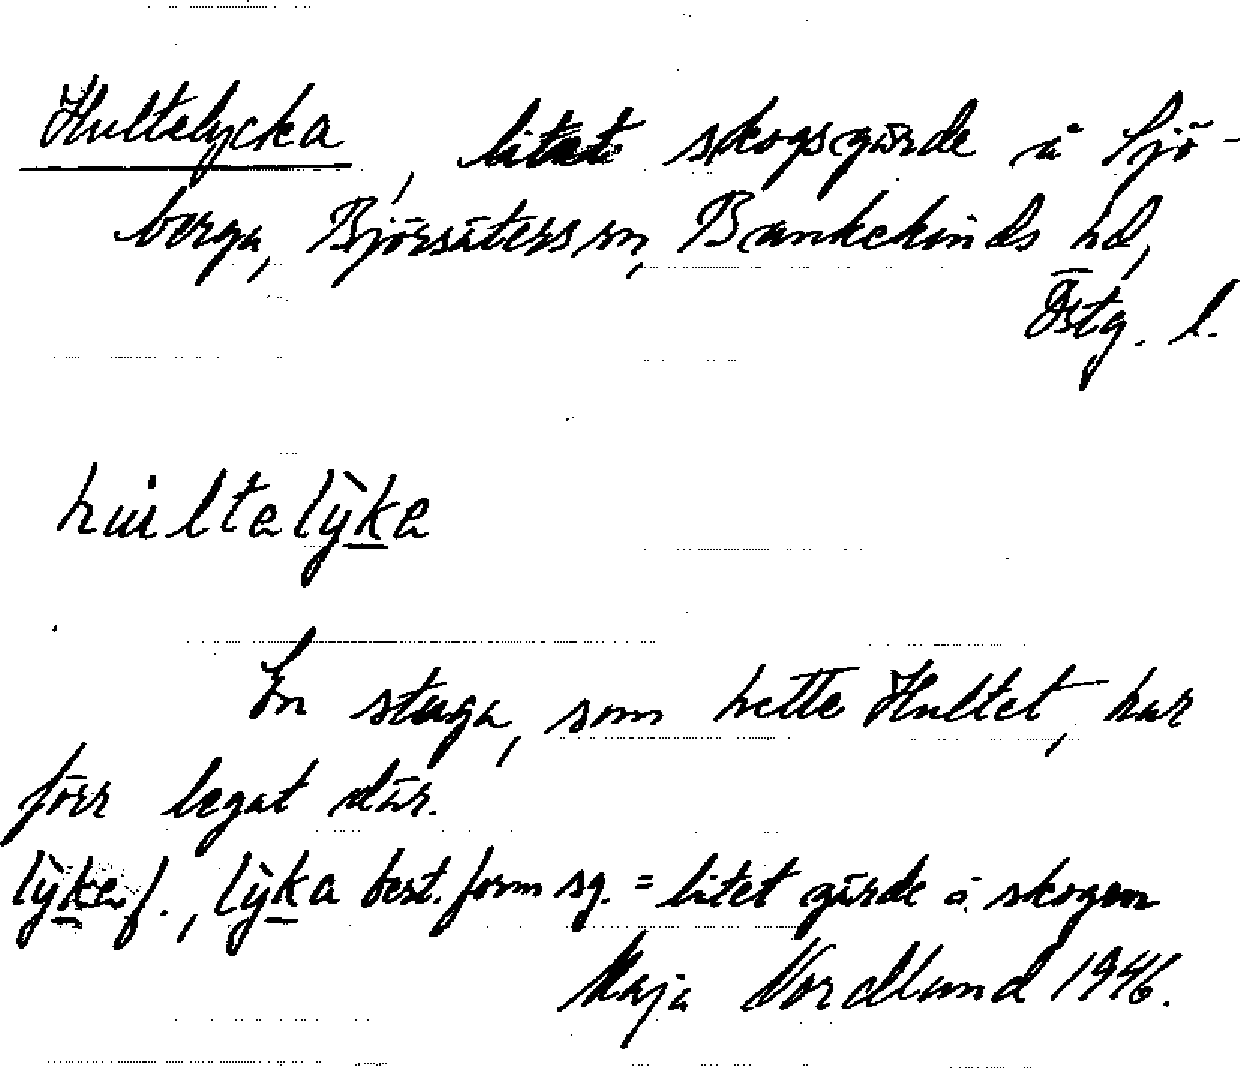 Hultelycka, litet skogsgärde å Sjö-
berga, Björsäters sn, Bankekinds hd,
Östg. l.
hu̇ltalỳka
En stuga, som hette Hultet, har
förr legat där.
lỳka f., lỳka best. form sg. = litet gärde i skogen
Maja Nordlund 1946.